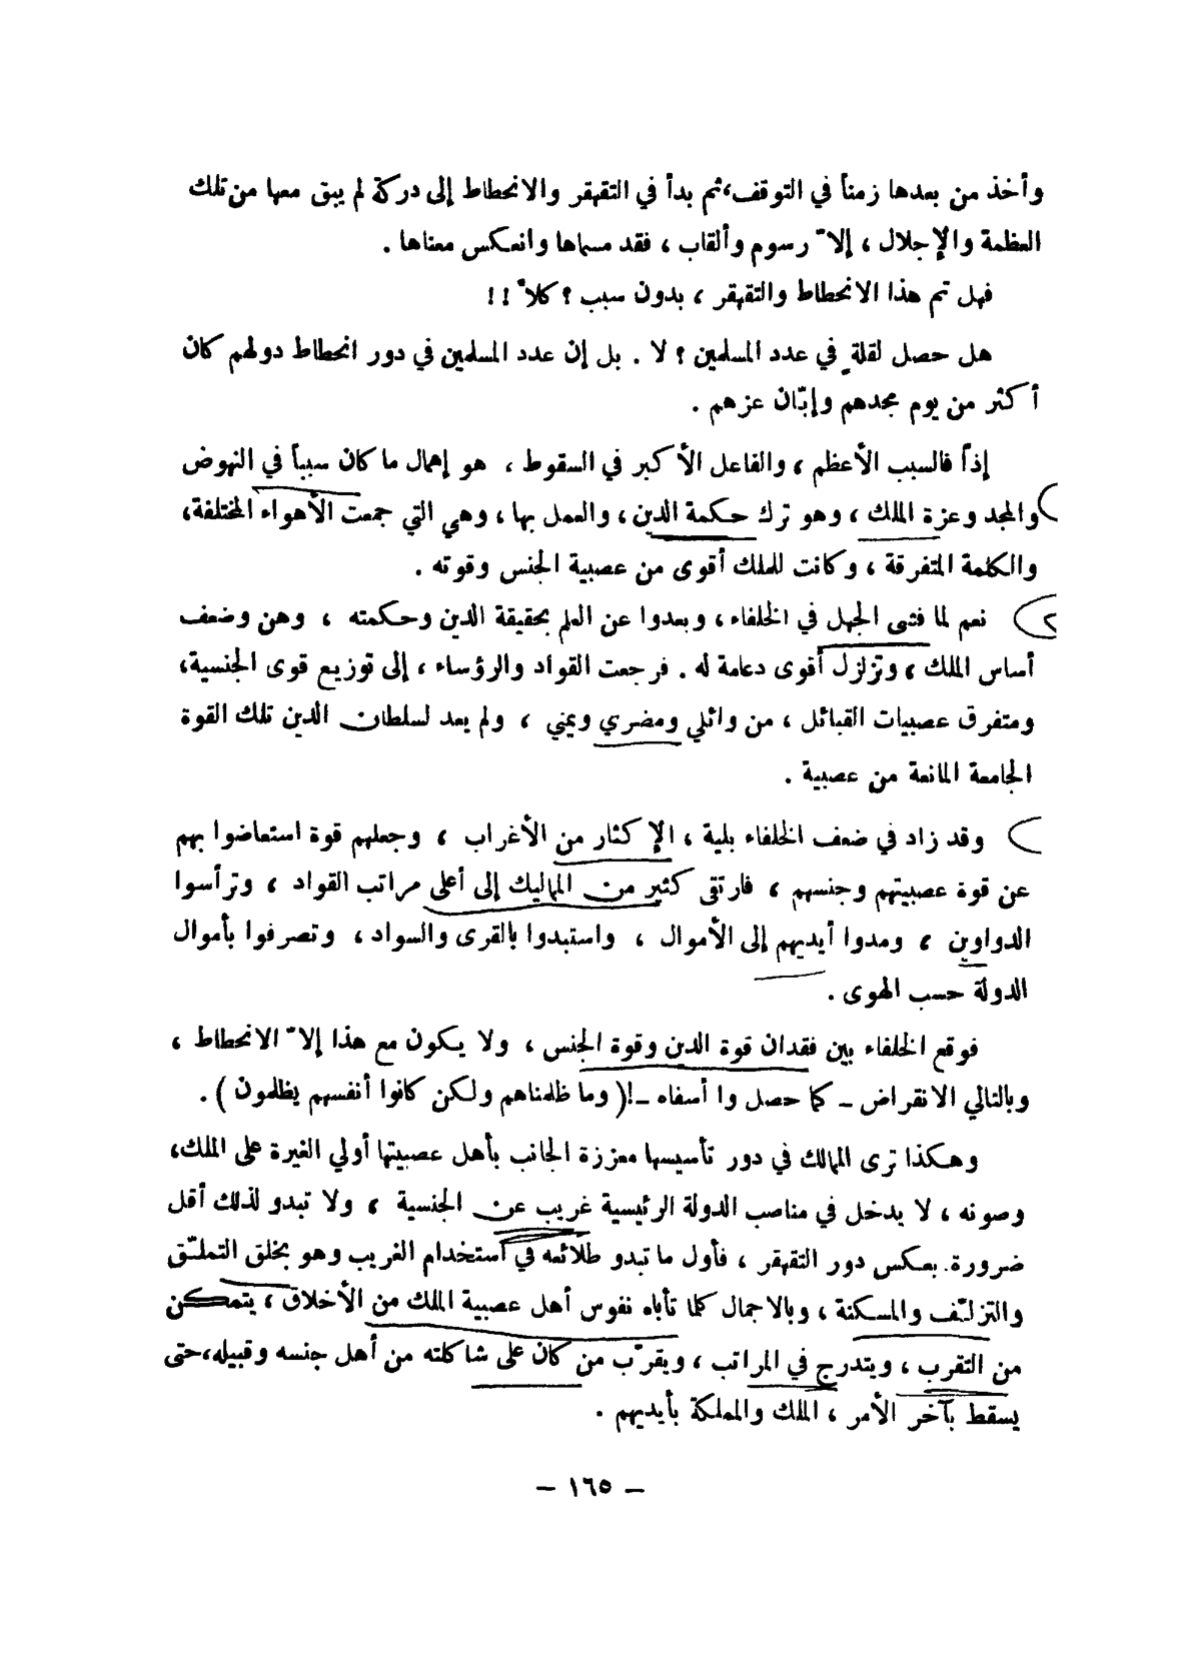 وأخذ من بعدها زمناً في التوقف، ثم بدأ في التقهقر والانحطاط إلى دركة لم يبق معها من تلك
العظمة والإجلال ، إلاّ رسوم وألقاب ، فقد مسماها وانعكس معناها .
فهل تم هذا الانحطاط والتقهقر ، بدون سبب ؟ كلاّ !!
هل حصل لقلةٍ في عدد المسلمين ؟ لا . بل إن عدد المسلمين في دور انحطاط دولهم كان
أكثر من يوم مجدهم وإبّان عزهم .
إذاً فالسبب الأعظم ، والفاعل الأكبر في السقوط ، هو إهمال ما كان سبباً في النهوض
والمجد وعزة الملك ، وهو ترك حكمة الدين ، والعمل بها ، وهي التي جمعت الأهواء المختلفة،
والكلمة المتفرقة ، وكانت للملك أقوى من عصبية الجنس وقوته .
نعم لما فشى الجهل في الخلفاء ، وبعدوا عن العلم بحقيقة الدين وحكمته ، وهن وضعف
أساس الملك ، وتزلزل أقوى دعامة له . فرجعت القواد والرؤساء ، إلى توزيع قوى الجنسية،
ومتفرق عصبيات القبائل ، من وائلي ومضري ويمني ، ولم يعد لسلطان الدين تلك القوة
الجامعة المانعة من عصبية .
وقد زاد في ضعف الخلفاء بلية ، الإكثار من الأغراب ، وجعلهم قوة استعاضوا بهم
عن قوة عصبيتهم وجنسهم ، فارتقى كثير من المماليك إلى أعلى مراتب القواد ، وترأسوا
الدواوين ، ومدوا أيديهم إلى الأموال ، واستبدوا بالقرى والسواد ، وتصرفوا بأموال
الدولة حسب الهوى .
فوقع الخلفاء بين فقدان قوة الدين وقوة الجنس ، ولا يكون مع هذا إلاّ الانحطاط ،
وبالتالي الانقراض – كما حصل وا أسفاه –! ( وما ظلمناهم ولكن كانوا أنفسهم يظلمون ) .
وهكذا ترى الممالك في دور تأسيسها معززة الجانب بأهل عصبيتها أولي الغيرة على الملك،
وصونه ، لا يدخل في مناصب الدولة الرئيسية غريب عن الجنسية ، ولا تبدو لذلك أقل
ضرورة. بعكس دور التقهقر ، فأول ما تبدو طلائعه في استخدام الغريب وهو بخلق التملّق
والتزلّف والمسكنة ، وبالاجمال كلما تأباه نفوس أهل عصبية الملك من الأخلاق ، يتمكن
من التقرب ، ويتدرج في المراتب ، ويقرّب من كان على شاكلته من أهل جنسه وقبيله،حتى
يسقط بآخر الأمر ، الملك والمملكة بأيديهم .
– ١٦٥ –